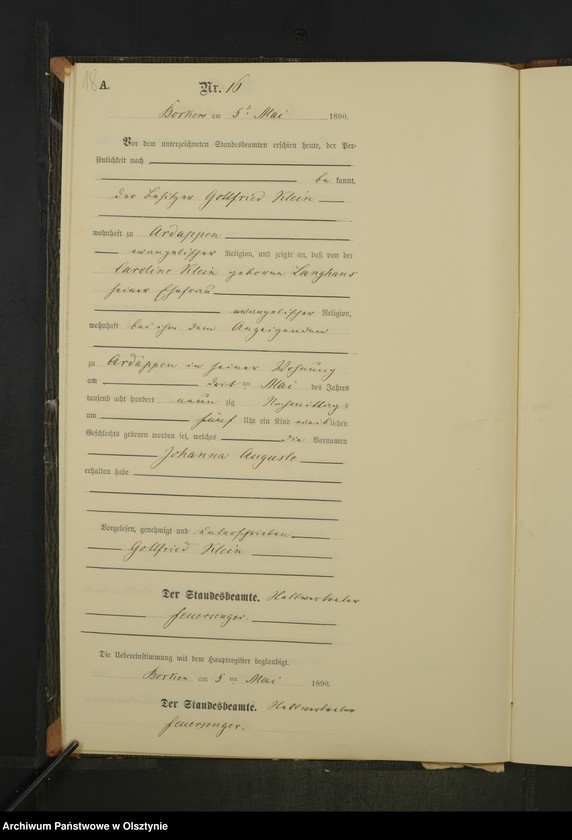 18 A.
Nr. 16
Borken am 5ᵗ Mai 1890.
Vor dem unterzeichneten Standesbeamten erschien heute, der Per-
sönlichkeit nach
be kannt,
der Besitzer Gottfried Klein
wohnhaft zu Ardappen
evangelischer Religion, und zeigte an, daß von der
Caroline Klein geborene Langhans
seiner Ehefrau
evangelischer Religion,
wohnhaft bei ihm dem Anzeigenden
zu Ardappen in seiner Wohnung
am drit ten Mai des Jahres
tausend acht hundert neun zig Nachmittags
um fünf Uhr ein Kind weiblichen
Geschlechts geboren worden sei, welches die Vornamen
Johanna Auguste
erhalten habe
Vorgelesen, genehmigt und unterschrieben
Gottfried Klein
Der Standesbeamte. Stellvertreter
Feuersenger.
Die Uebereinstimmung mit dem Hauptregister beglaubigt.
Borken am 5 ten Mai 1890.
Der Standesbeamte. Stellvertreter
Feuersenger.
Archiwum Państwowe w Olsztynie